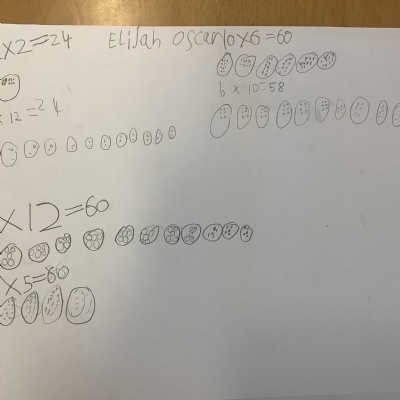 x2=24 ELiJah Oscar 10x6=60
6 x 10=58
x 12=24
x12=60
x5=60